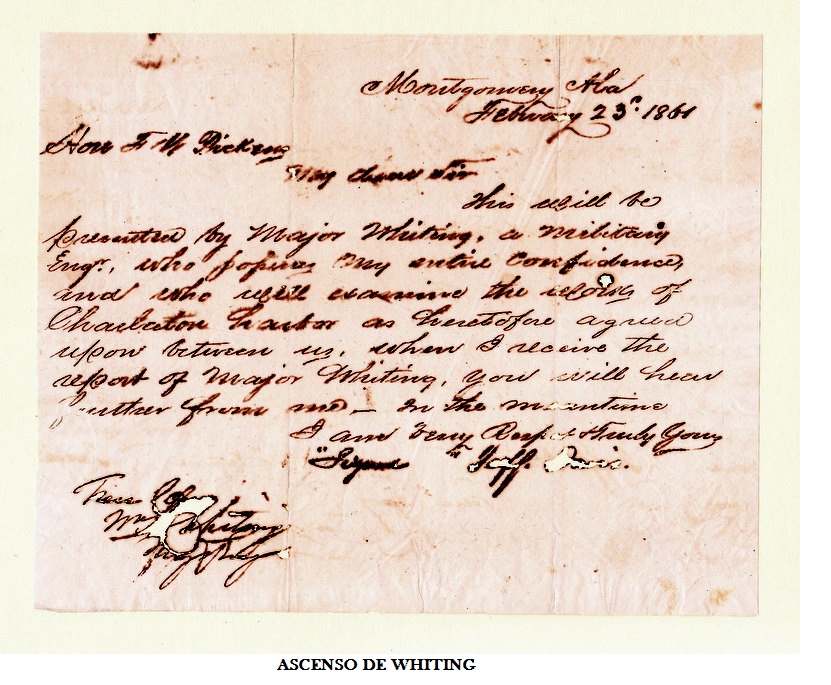 Montgomery Ala
February 23ʳ 1861
Hon F W Pickens
My dear sir
This will be
presented by Major Whiting, a military
Engʳ, who possesses my entire confidence,
and who will examine the works of
Charleston harbor as heretofore agreed
upon between us, when I receive the
report of Major Whiting, you will hear
further from me – In the meantime
I am Very Resp & Truly Yours
"Signed" Jeff. Davis.
True
Whiting
ASCENSO DE WHITING